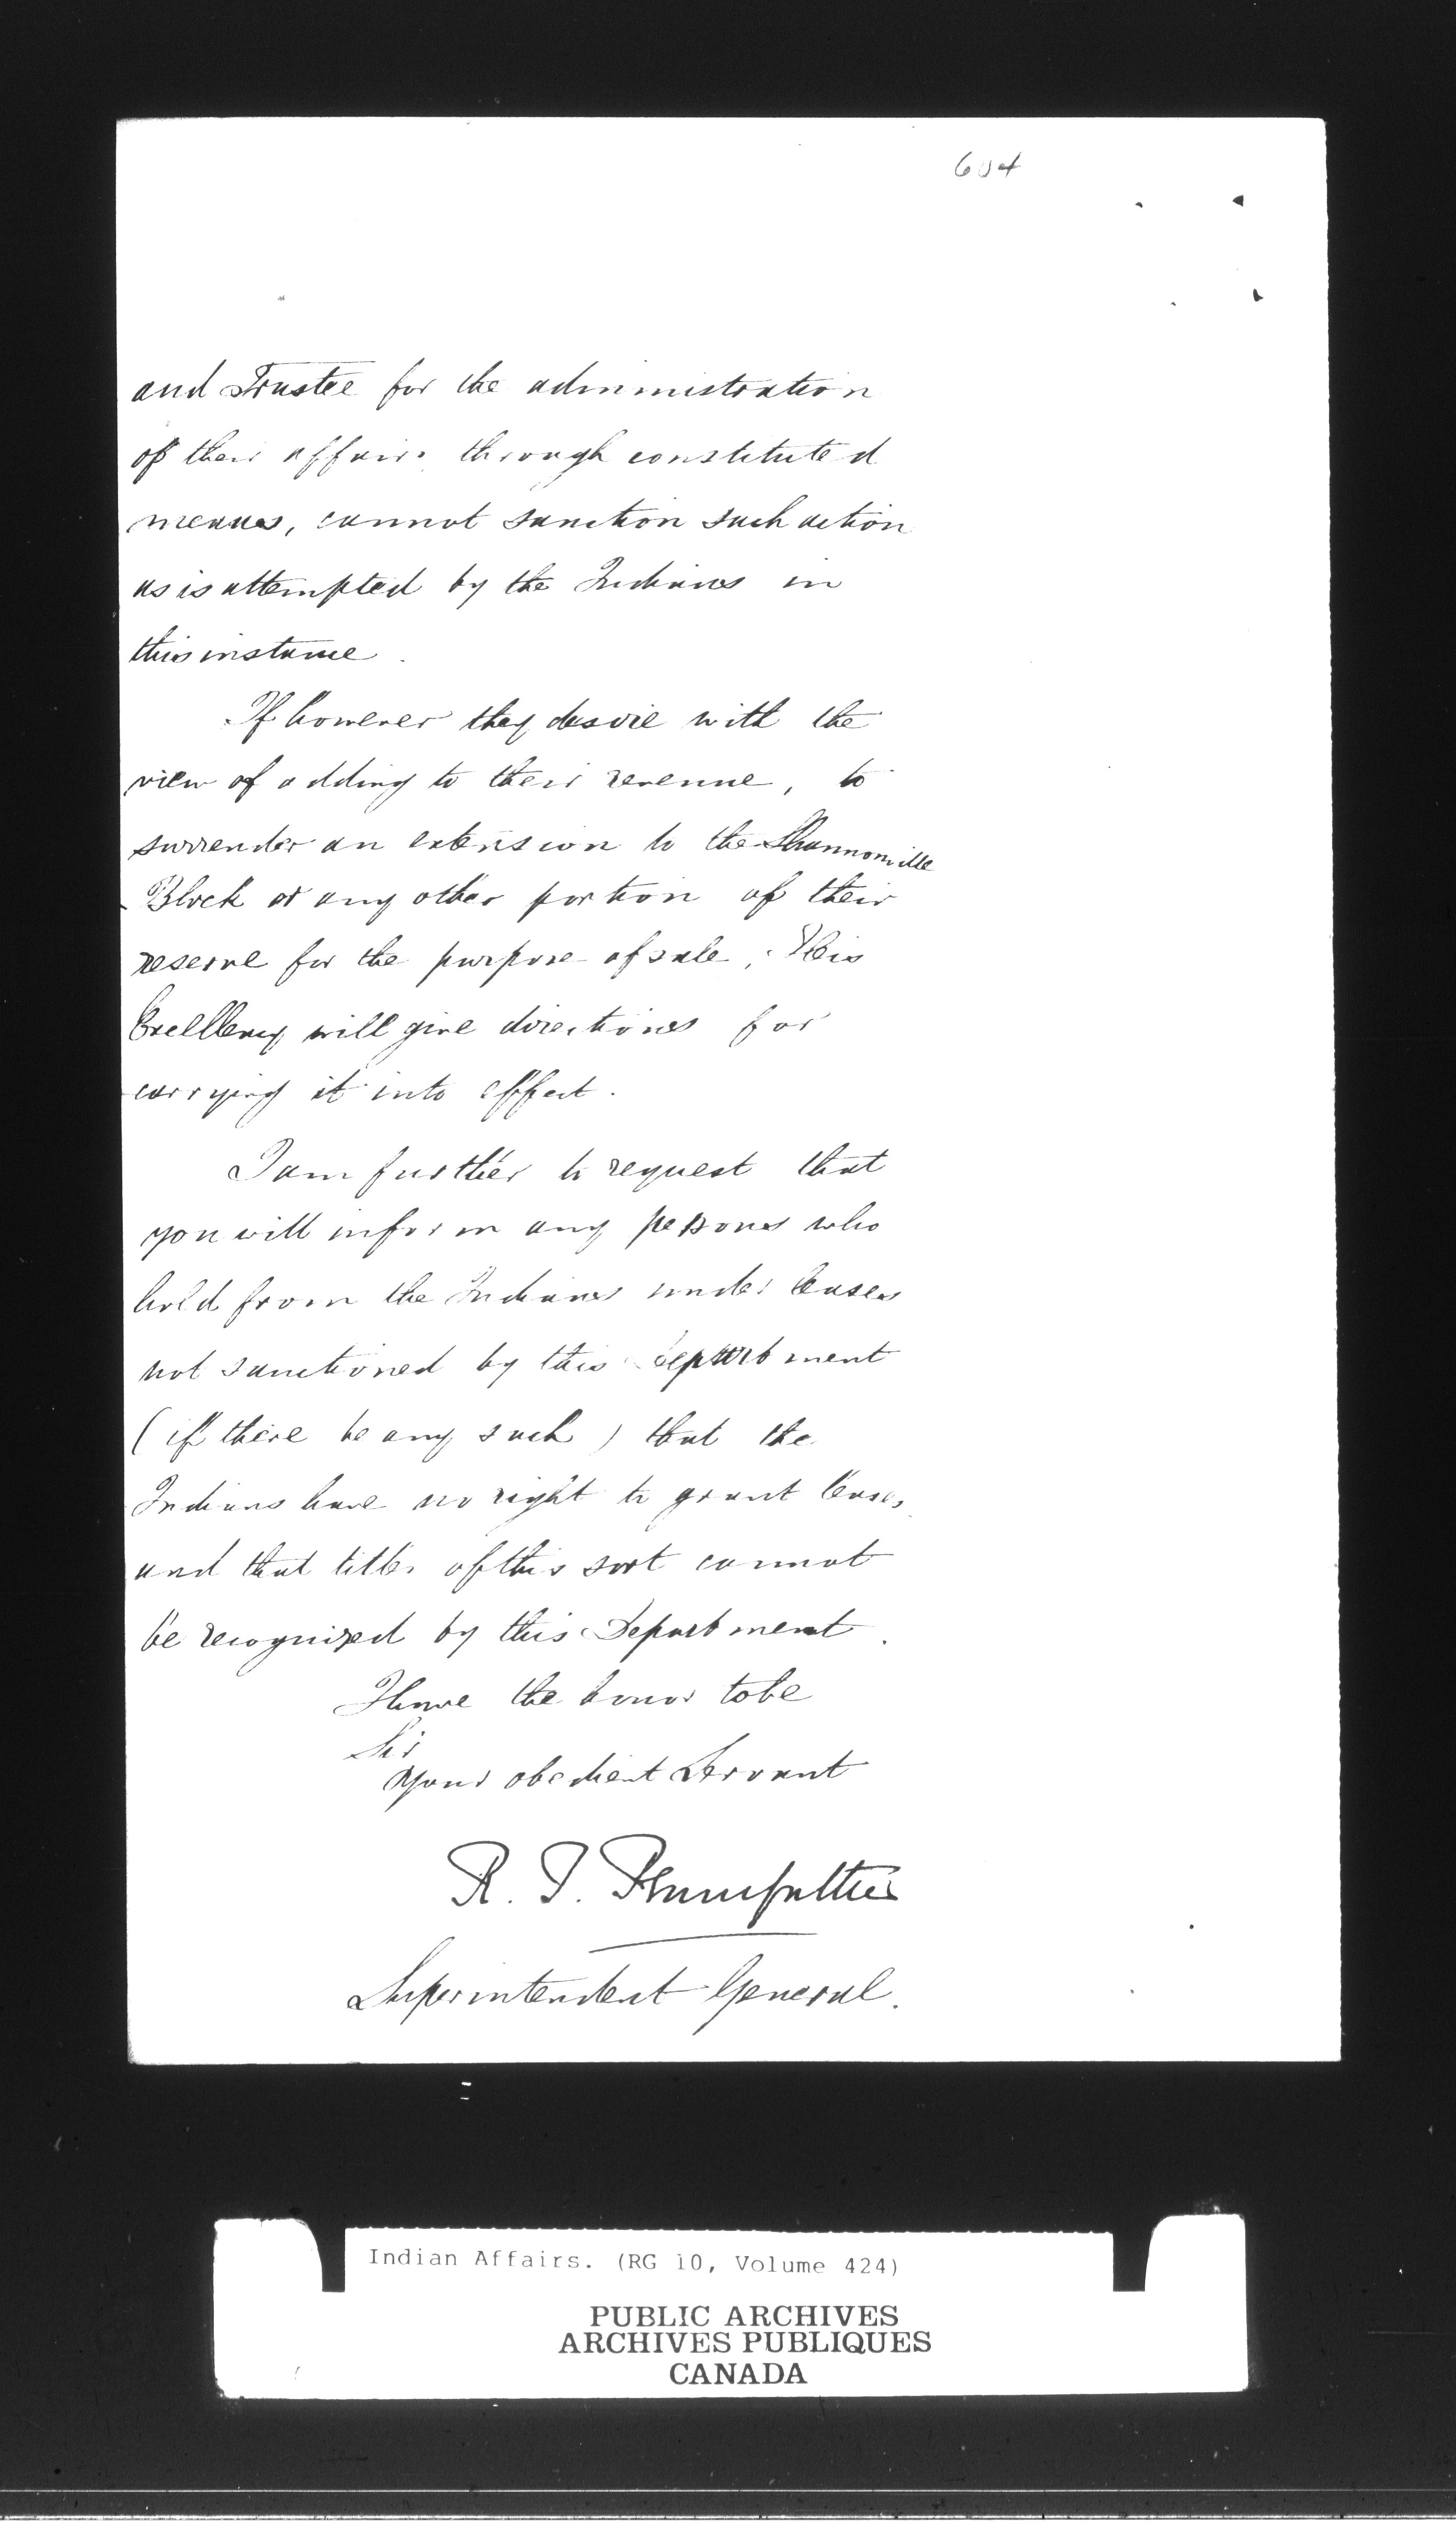 604
and Trustee for the administration
of their affairs through constituted
means, cannot sanction such action
as is attempted by the Indians in
this instance.
If however they desire with the
view of adding to their revenue, to
surrender an extension to the Shannonville
Block or any other portion of their
reserve for the purpose of sale, His
Excellency will give directions for
carrying it into effect.
I am further to request that
you will inform any persons who
hold from the Indians under leases
not sanctioned by this Department
(if there be any such) that the
Indians have no right to grant leases,
and that titles of this sort cannot
be recognized by this Department.
I have the honor to be
Sir
Your obedient Servant
R. T. Pennefather
Superintendent General.
Indian Affairs. (RG 10, Volume 424)
PUBLIC ARCHIVES
ARCHIVES PUBLIQUES
CANADA